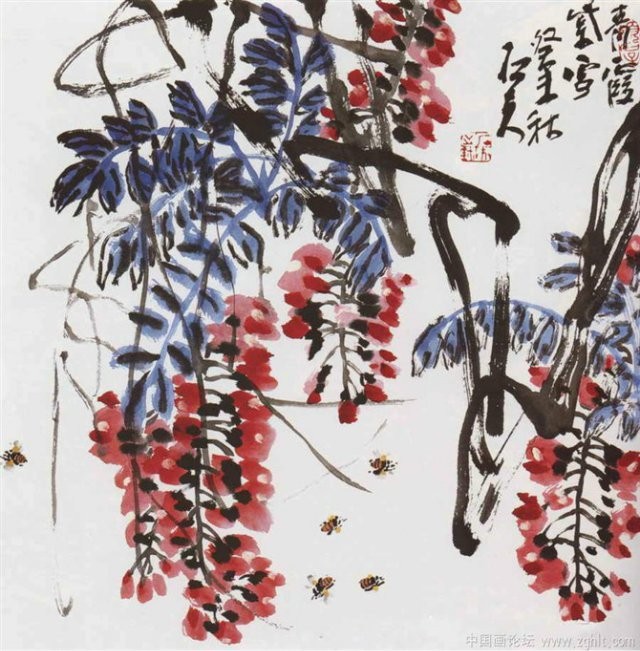 青霞
紫雪
癸未秋
石夫
中国画论坛 www.zghlt.com